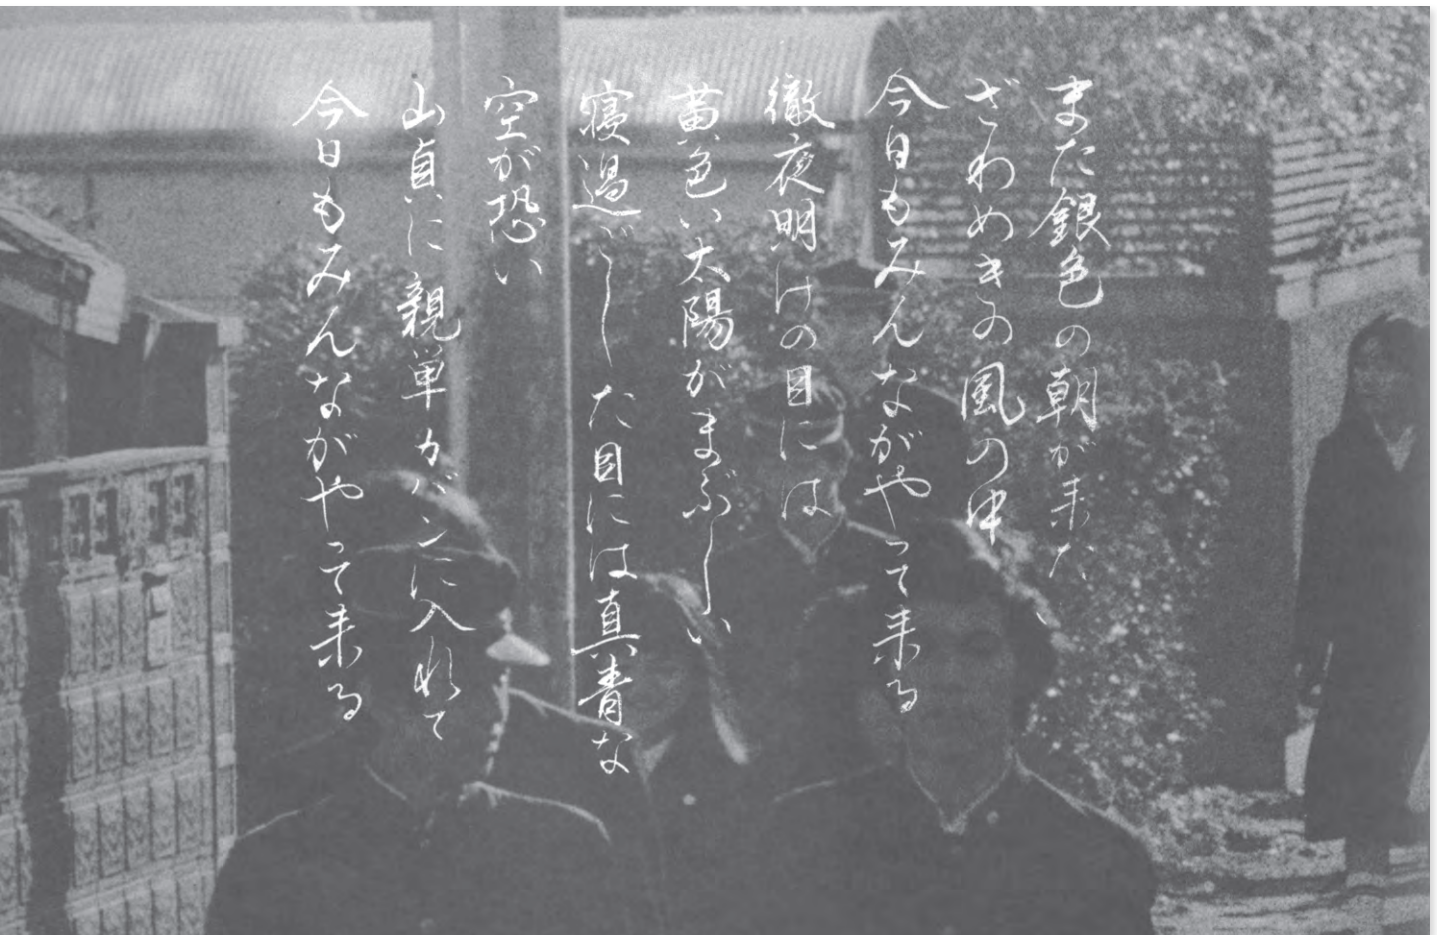 また銀色の朝が来た
ざわめきの風の中
今日もみんながやって来る
徹夜明けの目には
黄色い太陽がまぶしい
寝過ごした目には真青な
空が恐い
山貞に親単カバンに入れて
今日もみんながやって来る